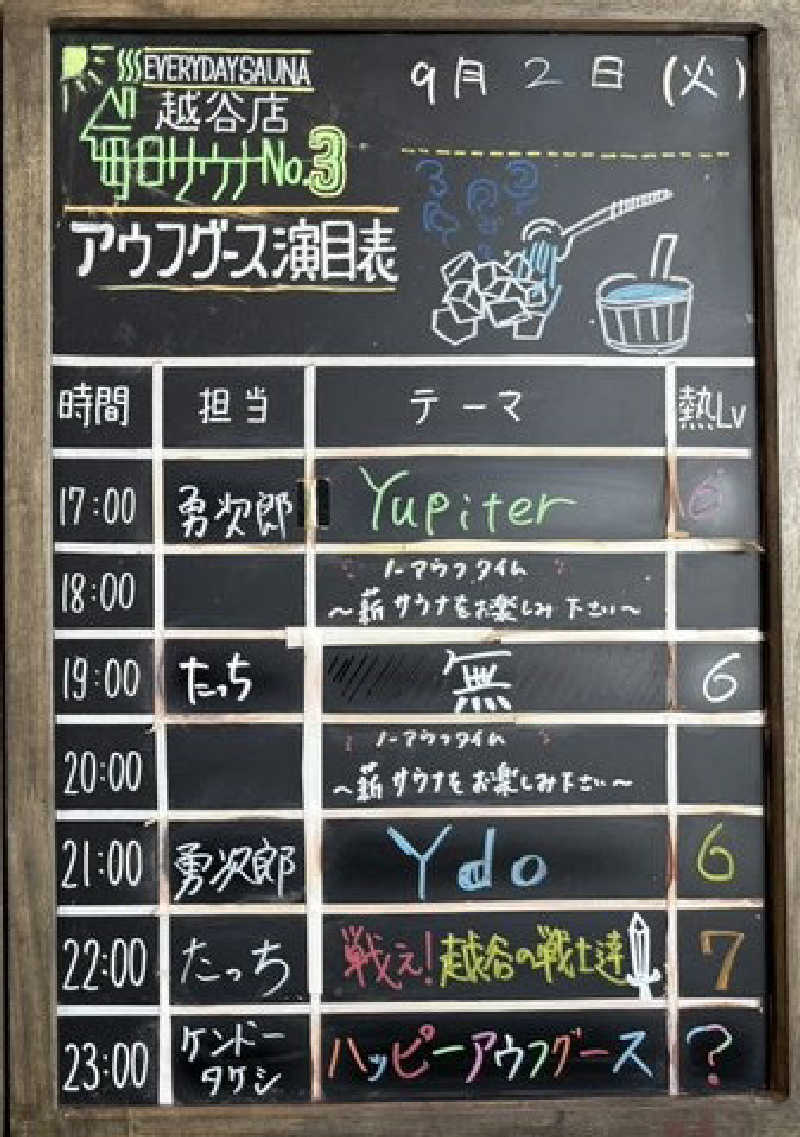 EVERYDAYSAUNA
越谷店
毎日サウナNo.3
アウフグース演目表
9月2日(火)
時間 担当 テーマ 熱Lv
17:00 勇次郎 Yupiter 6
18:00 ノーアウフタイム
〜薪サウナをお楽しみ下さい〜
19:00 たっち 無 6
20:00 ノーアウフタイム
〜薪サウナをお楽しみ下さい〜
21:00 勇次郎 Ydo 6
22:00 たっち 戦え!越谷の戦士達 7
23:00 ケンドータケシ ハッピーアウフグース ?